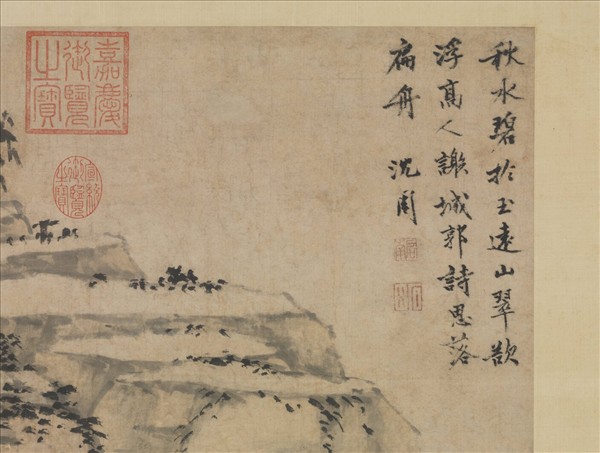 秋水碧於玉遠山翠欲
浮高人謝城郭詩思落
扁舟 沈周
嘉慶
御覽
之寶
宣統
御覽
之寶